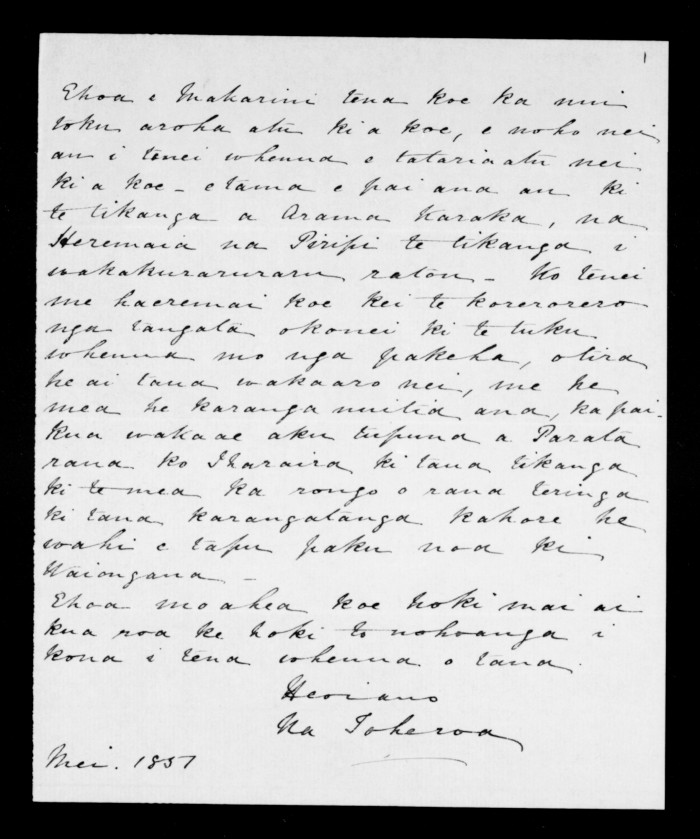 1
Ehoa e Makarini tena koe ka nui
toku aroha atu ki a koe, e noho nei
au i tenei whenua e tatariaatu nei
ki a koe - e tama e pai ana au ki
te tikanga a Arama Karaka, na
Heremaia na Piripi te tikanga i
wakakuraruraru ratou - Ko tenei
me haeremai koe kei te korerorero
nga tangata okonei ki te tuku
whenua mo nga pakeha, otira
he ai tana wakaaro nei, me he
mea he karanga nuitia ana, ka pai -
Kua wakaae aku tupuna a Parata
rana ko Iharaira ki tana tikanga
ki te mea ka rongo o rana teringa
ki tana karangatanga kahore he
wahi e tapu paku noa ki
Waiongana -
Ehoa mo ahea koe hoki mai ai
kua roa ke hoki to nohoanga i
kona i tena whenua o tana.
Heoiano
Na Toheroa
Mei. 1851